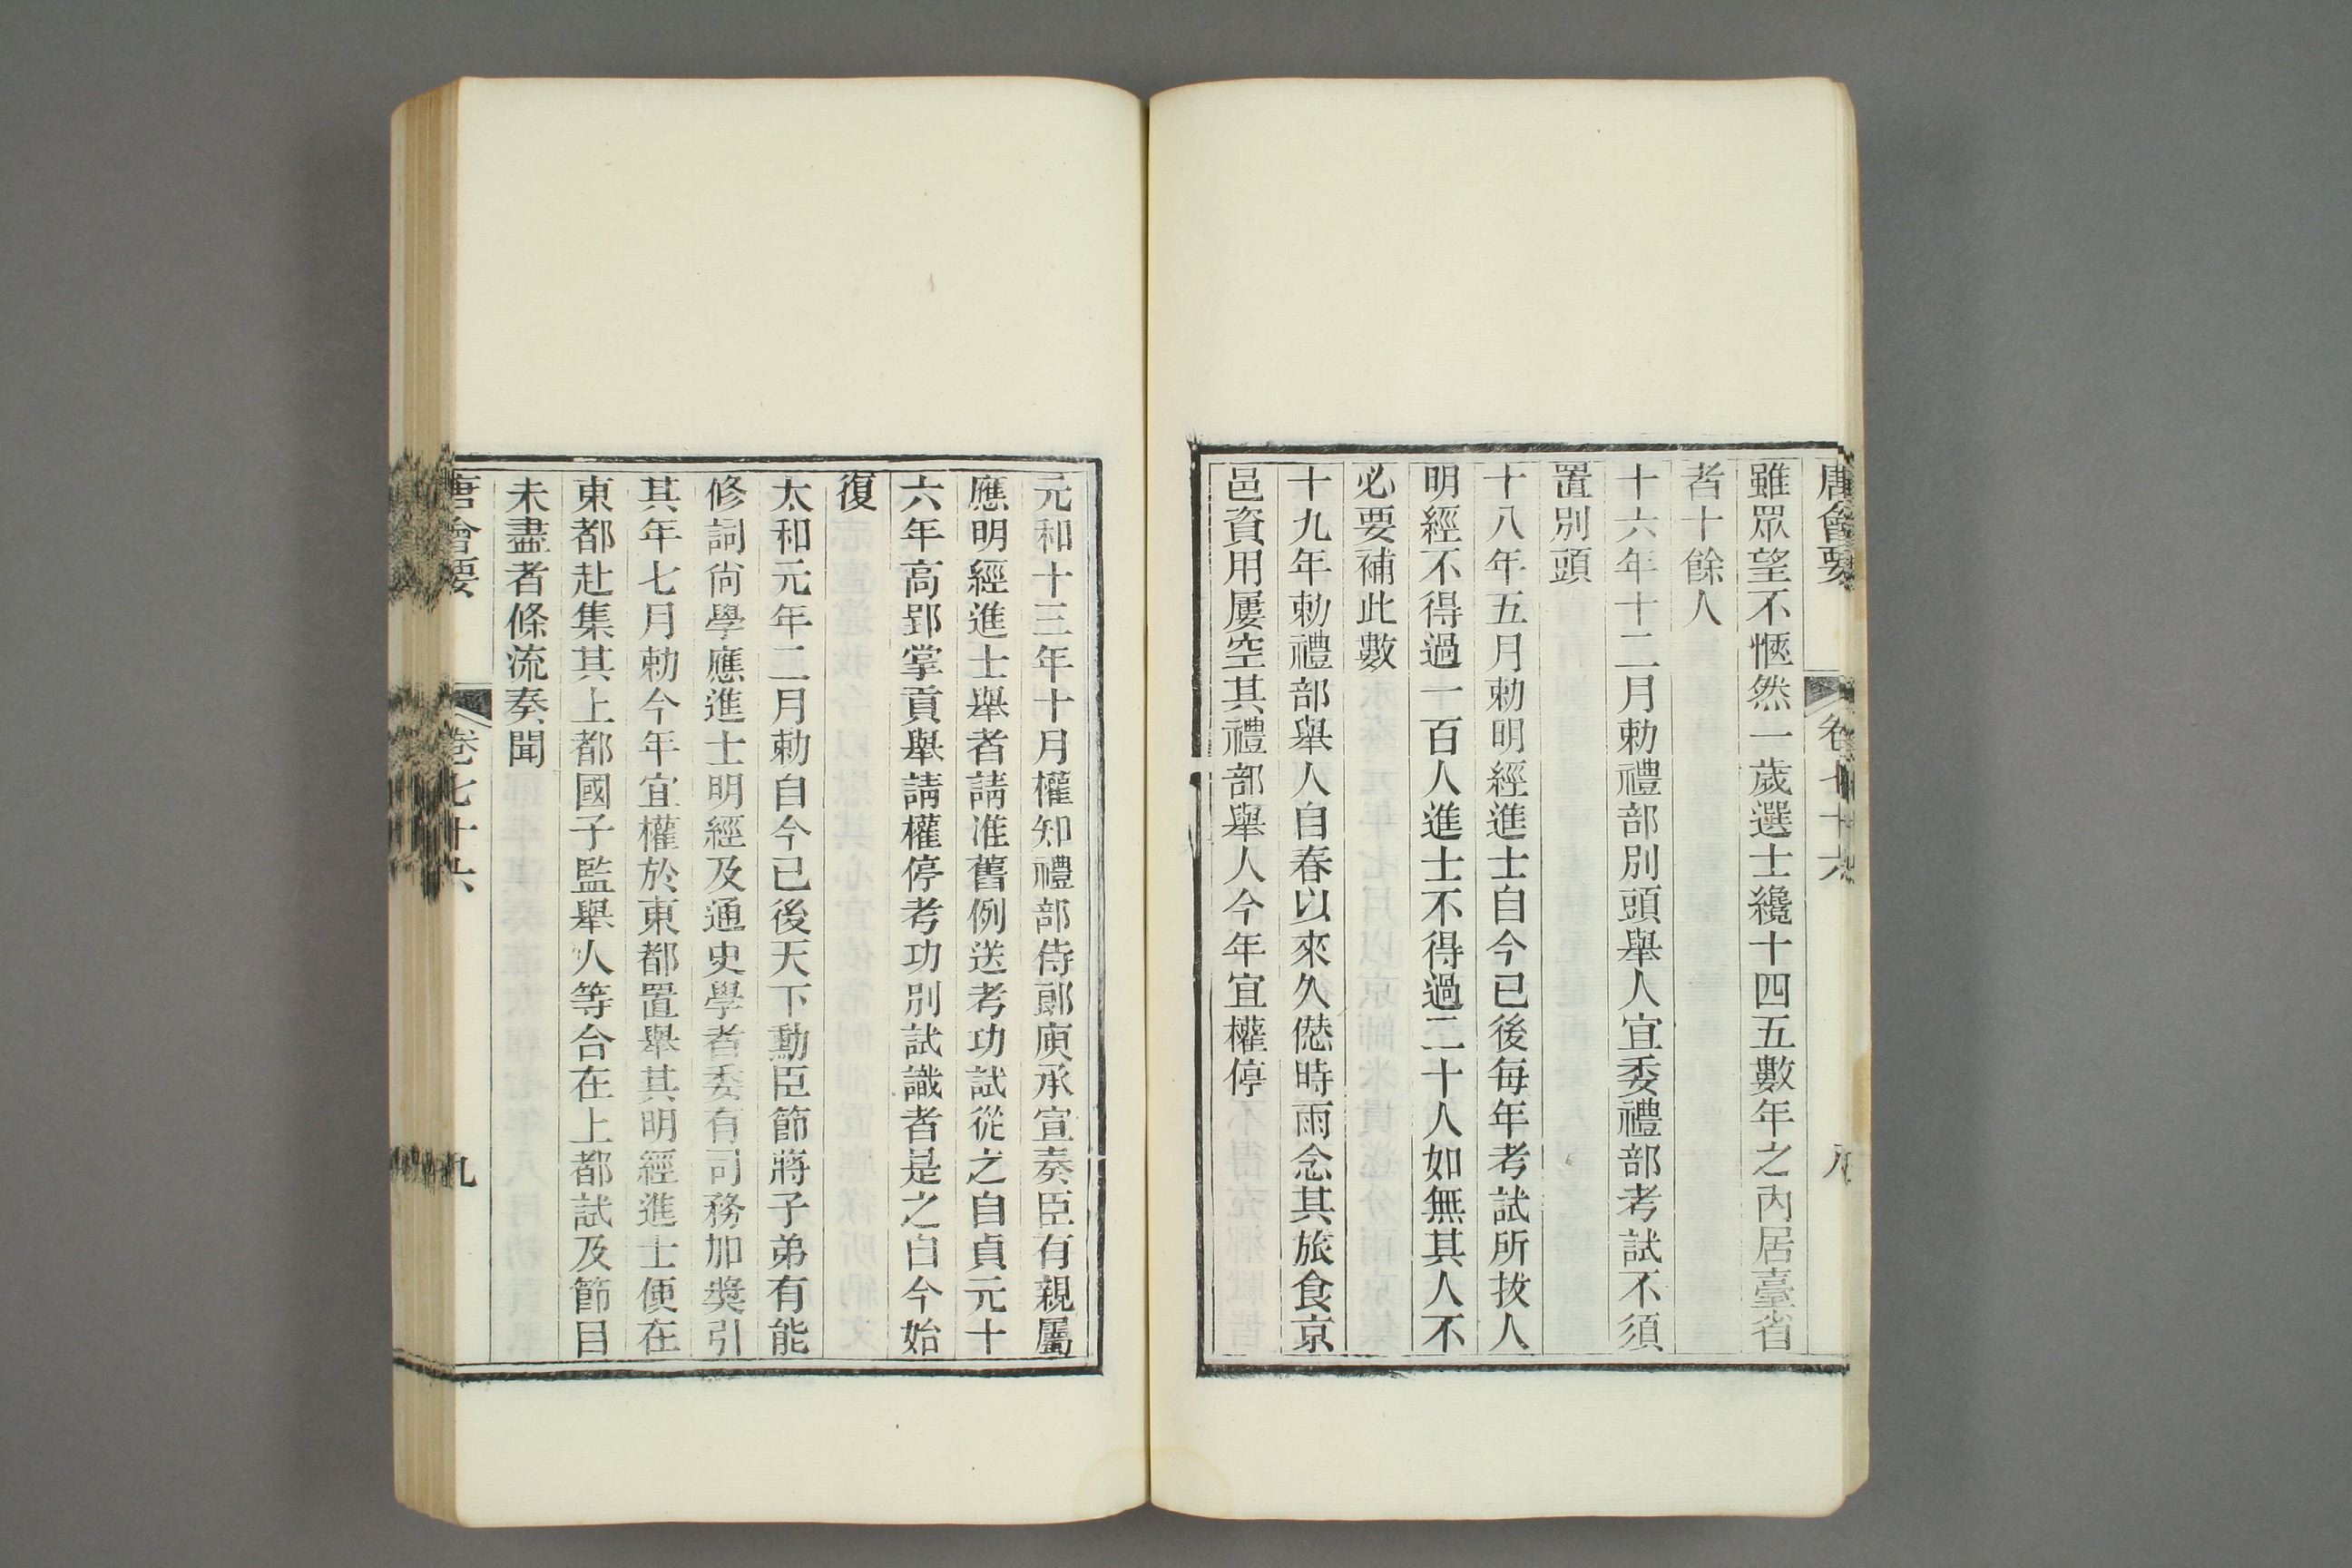 唐會要 卷七十六 八
雖眾望不愜然一歲選士纔十四五數年之內居臺省
者十餘人
十六年十二月勅禮部別頭舉人宜委禮部考試不須
置別頭
十八年五月勅明經進士自今已後每年考試所拔人
明經不得過一百人進士不得過二十人如無其人不
必要補此數
十九年勅禮部舉人自春以來久愆時雨念其旅食京
邑資用屢空其禮部舉人今年宜權停
元和十三年十月權知禮部侍郎庾承宣奏臣有親屬
應明經進士舉者請准舊例送考功試從之自貞元十
六年高郢掌貢舉請權停考功別試識者是之自今始
復
太和元年二月勅自今已後天下勳臣節將子弟有能
修詞尙學應進士明經及通史學者委有司務加獎引
其年七月勅今年宜權於東都置舉其明經進士便在
東都赴集其上都國子監舉人等合在上都試及節目
未盡者條流奏聞
唐會要 卷七十六 九